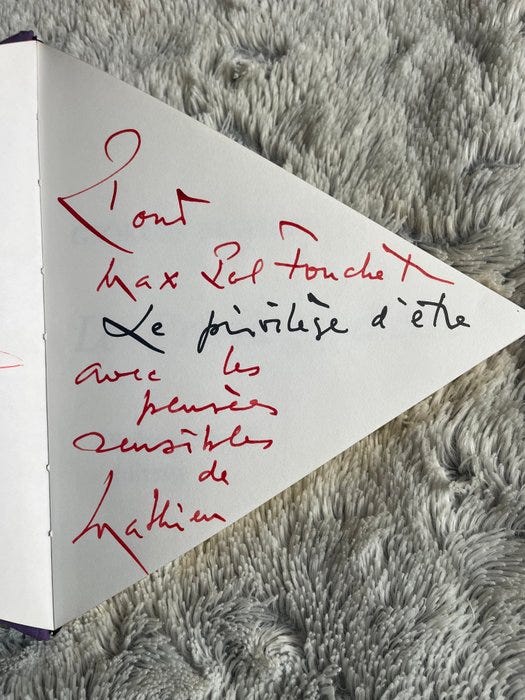 Pour
Max Pol Fouchet
Le privilège d'être
avec les
pensées
sensibles
de
Mathieu